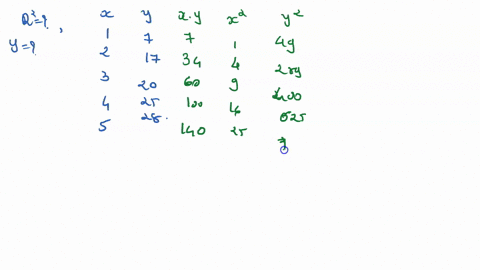 R²=?, x y x.y x² y²
y=? 1 7 7 1 49
2 17 34 4 289
3 20 60 9 400
4 25 100 16 625
5 28 140 25 7